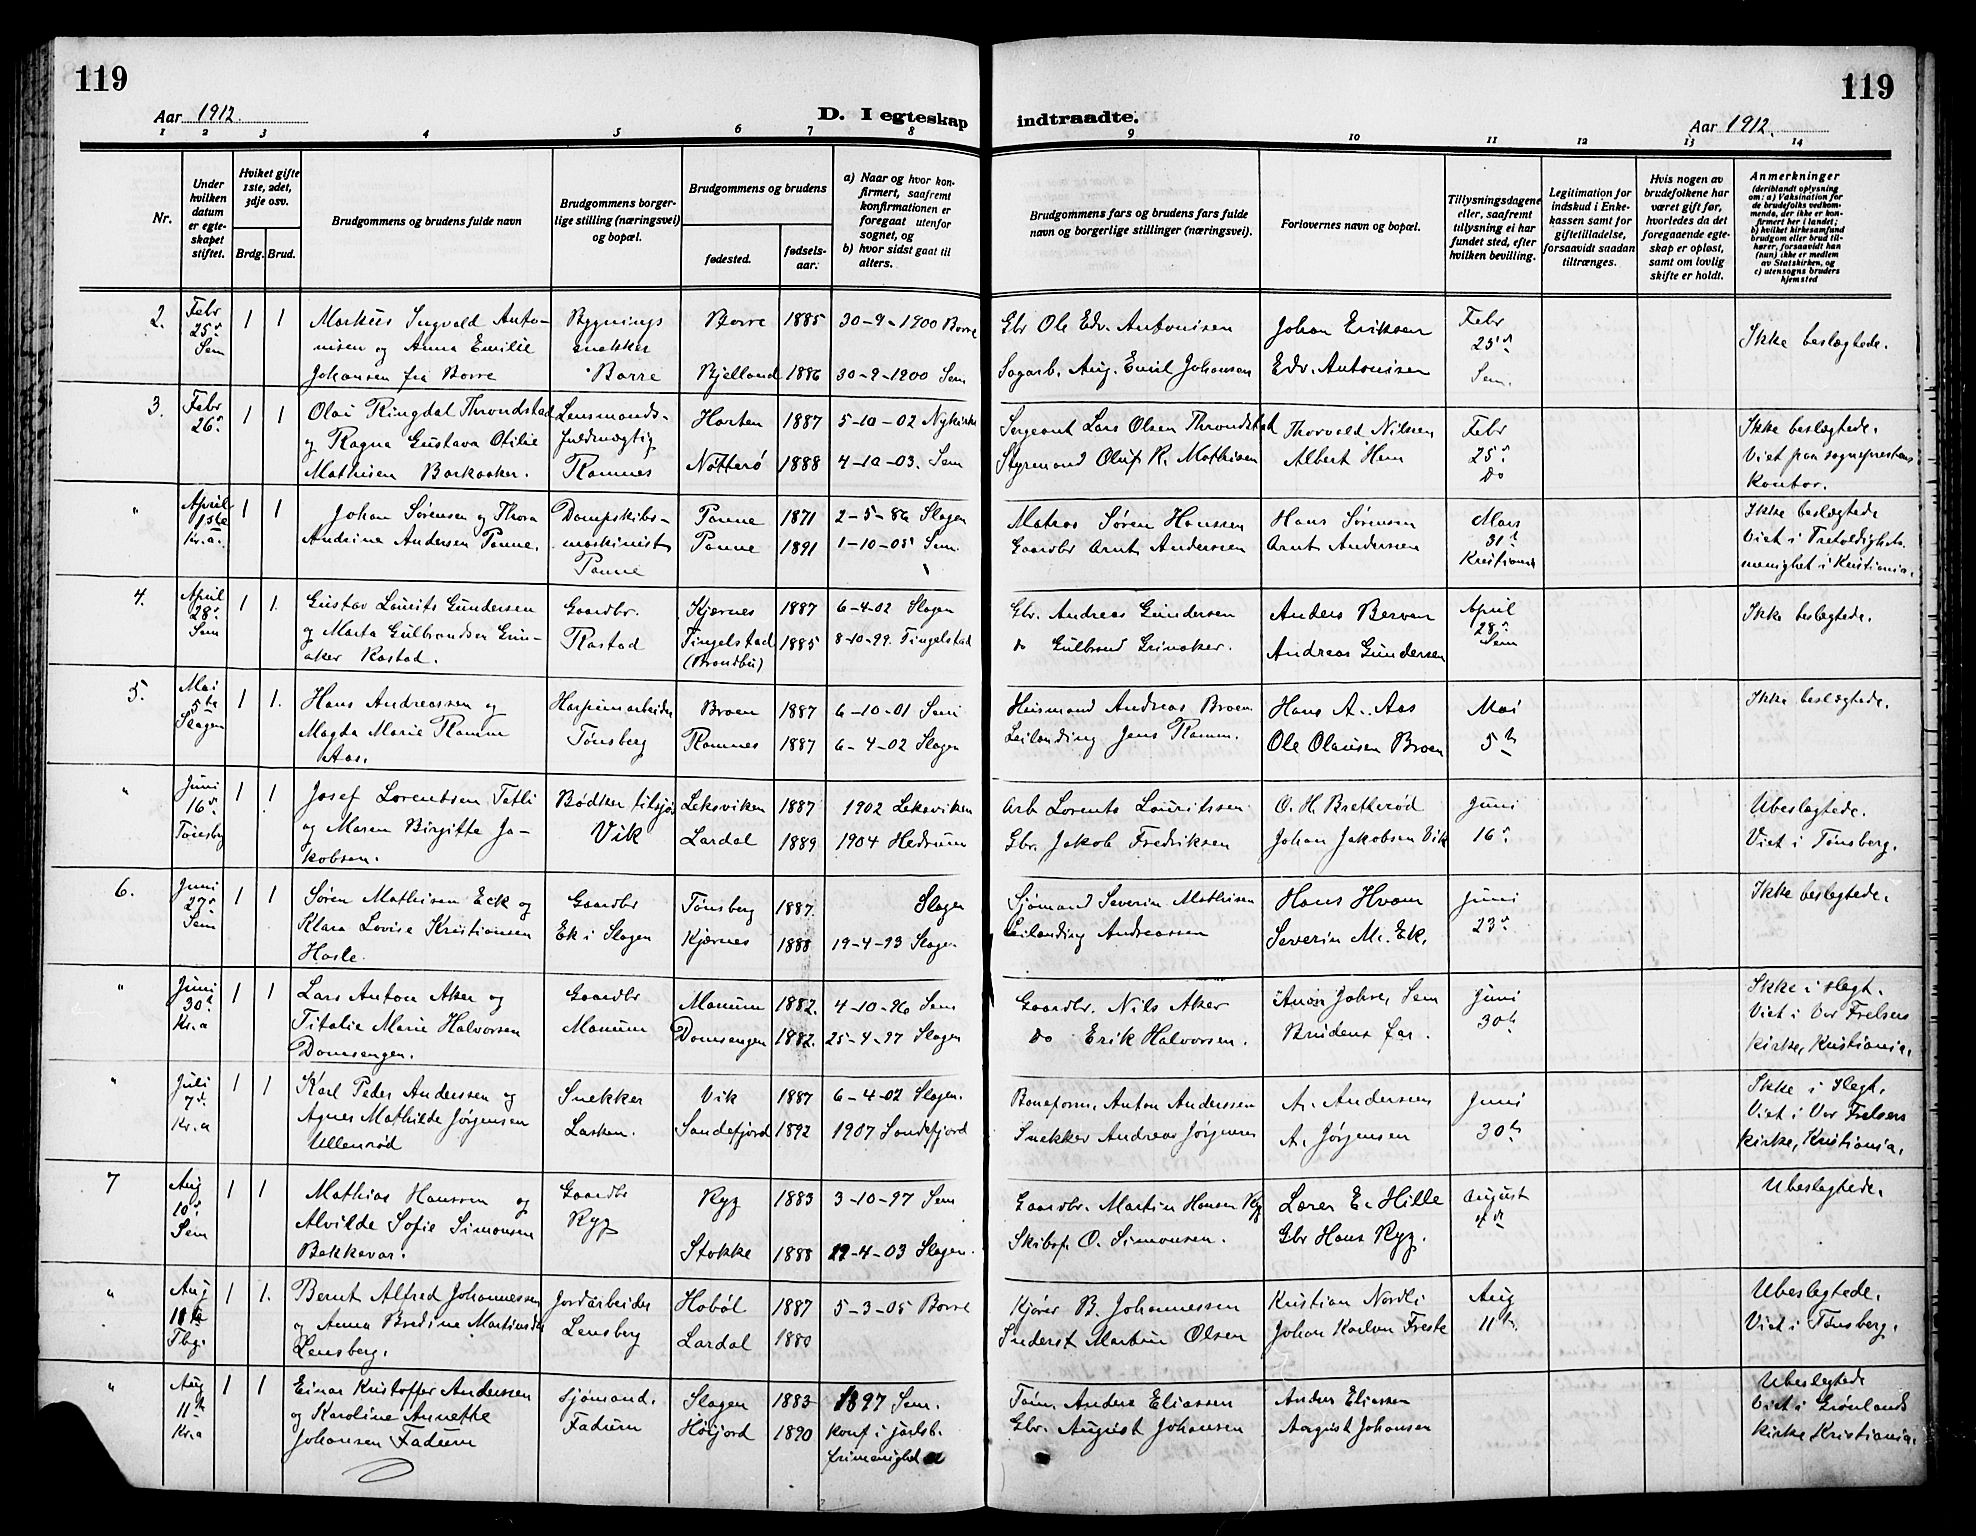 119
Aar 1912.
D. I egteskap
1 2 3 4 5 6 7 8
Nr.
Under hvilken datum er egteskapet stiftet.
Hviket gifte 1ste, 2det, 3dje osv.
Brdg. Brud.
Brudgommens og brudens fulde navn
Brudgommens borgerlige stilling (næringsvei) og bopæl.
Brudgommens og brudens
fødested.
fødselsaar.
a) Naar og hvor konfirmert, saafremt konfirmationen er foregaat utenfor sognet, og
b) hvor sidst gaat til alters.
2. Febr 25d Sem 1 1
Markus Ingvald Anto-
nisen og Anna Emilie
Johansen fra Borre
Bygnings
snekker
Borre
Borre 1885 30-9-1900 Borre
Bjelland 1886 30-9-1900 Sem
3. Febr 26d 1 1
Olai Ringdal Throndstad
og Ragna Gustava Otilie
Mathisen Barkaaker.
Lensmands-
fuldmægtig
Ramnes
Horten 1887 5-10-02 Nykirke
Nøtterø 1888 4-10-03. Sem
" April 1ste Kr.a. 1 1
Johan Sørensen og Thora
Andrine Andersen Tanne.
Dampskibs-
maskinist
Tanne
Tanne 1871 2-5-86 Slagen
Tanne 1891 1-10-05 Sem.
4. April 28d Sem 1 1.
Gustav Lourits Gundersen
og Marta Gulbrandsen Grin-
aker Rastad.
Gaardbr.
Rastad
Kjærnes 1887 6-4-02 Slagen
Tingelstad 1885 8-10-99. Tingelstad
(Brandbu)
5. Mai 5te Slagen 1 1.
Hans Andreassen og
Magda Marie Ramm
Aas.
Harpunarbeider
Tønsberg
Broen 1887 6-10-01 Sem
Ramnes 1887 6-4-02 Slagen
" Juni 16d Tønsberg 1 1
Josef Lorentsen Tetli
og Maren Birgitte Ja-
kobsen.
Bødker tilsjøs
Vik
Leksviken 1887 1902 Leksviken
Lardal 1889 1904 Hedrum
6. Juni 27d Sem 1 1
Søren Mathisen Eck og
Klara Lovise Kristiansen
Hasle.
Gaardbr
Ek i Slagen
Tønsberg 1887. Slagen
Kjærnes 1888 19-4-93 Slagen
" Juni 30te Kr.a 1 1
Lars Anton Aker og
Titalie Marie Halvorsen
Domsengen.
Gaardbr
Manum
Manum 1882. 4-10-96 Sem
Domsengen 1882. 25-4-97 Slagen
" Juli 7d. Kr.a 1 1
Karl Peder Anderssen og
Agnes Mathilde Jørgensen
Ullenrød
Snekker
Lasken.
Vik 1887 6-4-02 Slagen.
Sandefjord 1892 1907 Sandefjord
7 Aug 10d Sem 1 1
Mathias Hanssen og
Alvilde Sofie Simonsen
Bekkevar.
Gaardbr
Ryg
Ryg 1883 3-10-97 Sem
Stokke 1888 12-4-03 Slagen.
" Aug 11te Tbg. 1 1.
Bernt Alfred Johannessen
og Anna Bredine Martinsda
Lensberg.
Jordarbeider
Lensberg
Hobøl 1887 5-3-05 Borre
Lardal 1880
" Aug 11te Kr.a 1 1
Einar Kristoffer Anderssen
og Karoline Annette
Johansen Fadum
Sjømand.
Fadum
Slagen 1883 1897 Sem.
Høijord 1890 Konf i jarlsb.
frimenighed
119
Aar 1912.
indtraadte.
9 10 11 12 13 14
Brudgommens fars og brudens fars fulde navn og borgerlige stillinger (næringsvei).
Forlovernes navn og bopæl.
Tillysningsdagene eller, saafremt tillysning ei har fundet sted, efter hvilken bevilling.
Legitimation for indskud i Enkekassen samt for giftetilladelse, forsaavidt saadan tiltrænges.
Hvis nogen av brudefolkene har været gift før, hvorledes da det foregaaende egteskap er opløst, samt om lovlig skifte er holdt.
Anmerkninger (deriblandt oplysning om: a) Vaksination for de brudefolks vedkommende, der ikke er konfirmert her i landet; b) hvilket kirkesamfund brudgom eller brud tilhører, forsaavidt han (hun) ikke er medlem av Statskirken, og c) utensogns bruders hjemsted
Gbr Ole Edv. Antonisen
Sagarb. Aug. Emil Johansen
Johan Eriksen
Edv. Antonisen
Febr 25d Sem.
Ikke beslægtede.
Sergeant Lars Olsen Throndstad
Styrmand Oluf R. Mathisen
Thorvald Nilsen
Albert Hem
Febr 25d Do
Ikke beslægtede.
Viet paa sogneprestens
kontor.
Matros Søren Hanssen
Gaardbr Arnt Anderssen
Hans Sørensen
Arnt Anderssen
Mars 31te Kristiania
Ikke beslægtede
Viet i Trefoldigheds
menighet i Kristiania.
Gbr. Andreas Gundersen
do Gulbrand Grinaker.
Anders Berven
Andreas Gundersen
April 28d Sem
Ikke beslægtede.
Husmand Andreas Broen
Leilænding Jens Ramm.
Hans A. Aas
Ole Olausen Broen
Mai 5te
Ikke beslægtede.
Arb Lorents Lauritssen
Gbr. Jakob Fredriksen
O. H. Bretterød
Johan Jakobsen Vik
Juni 16d
Ubeslegtede.
Viet i Tønsberg.
Sjømand Severin Mathisen
Leilænding Andreassen
Hans Hvam
Severin M. Ek.
Juni 23d
Ikke beslegtede.
Gaardbr. Nils Aker
Do Erik Halvorsen.
Johs. Sem
Brudens far.
Juni 30te
Ikke i slegt.
Viet i Vor Frelsers
kirke, Kristiania.
Anton Anderssen
Snekker Andreas Jørgensen
A. Andersen
A. Jørgensen
Juni 30te
Ikke i slegt.
Viet i Vor Frelsers
kirke, Kristiania.
Gaardbr. Martin Hansen Ryg
Skibsf. O. Simonsen.
Lærer E. Hille
Gbr Hans Ryg.
August 4d
Ubeslegtede.
Kjører B. Johannessen
Inderst Martin Olsen
Kristian Nordli
Johan Karlsen Freste
Aug 11te
Ubeslegtede.
Viet i Tønsberg.
Tøm. Anders Eliassen
Gbr. August Johansen
Anders Eliassen
August Johansen
Ubeslegtede
Viet i Grønlands
kirke Kristiania.